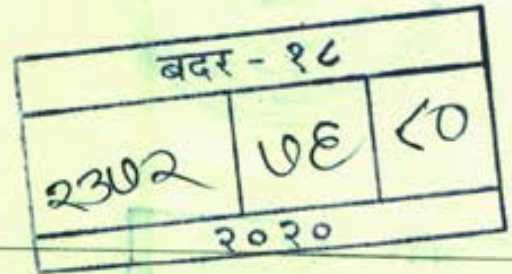 बदर - १८
२३७२ ७६ ८०
२०२०